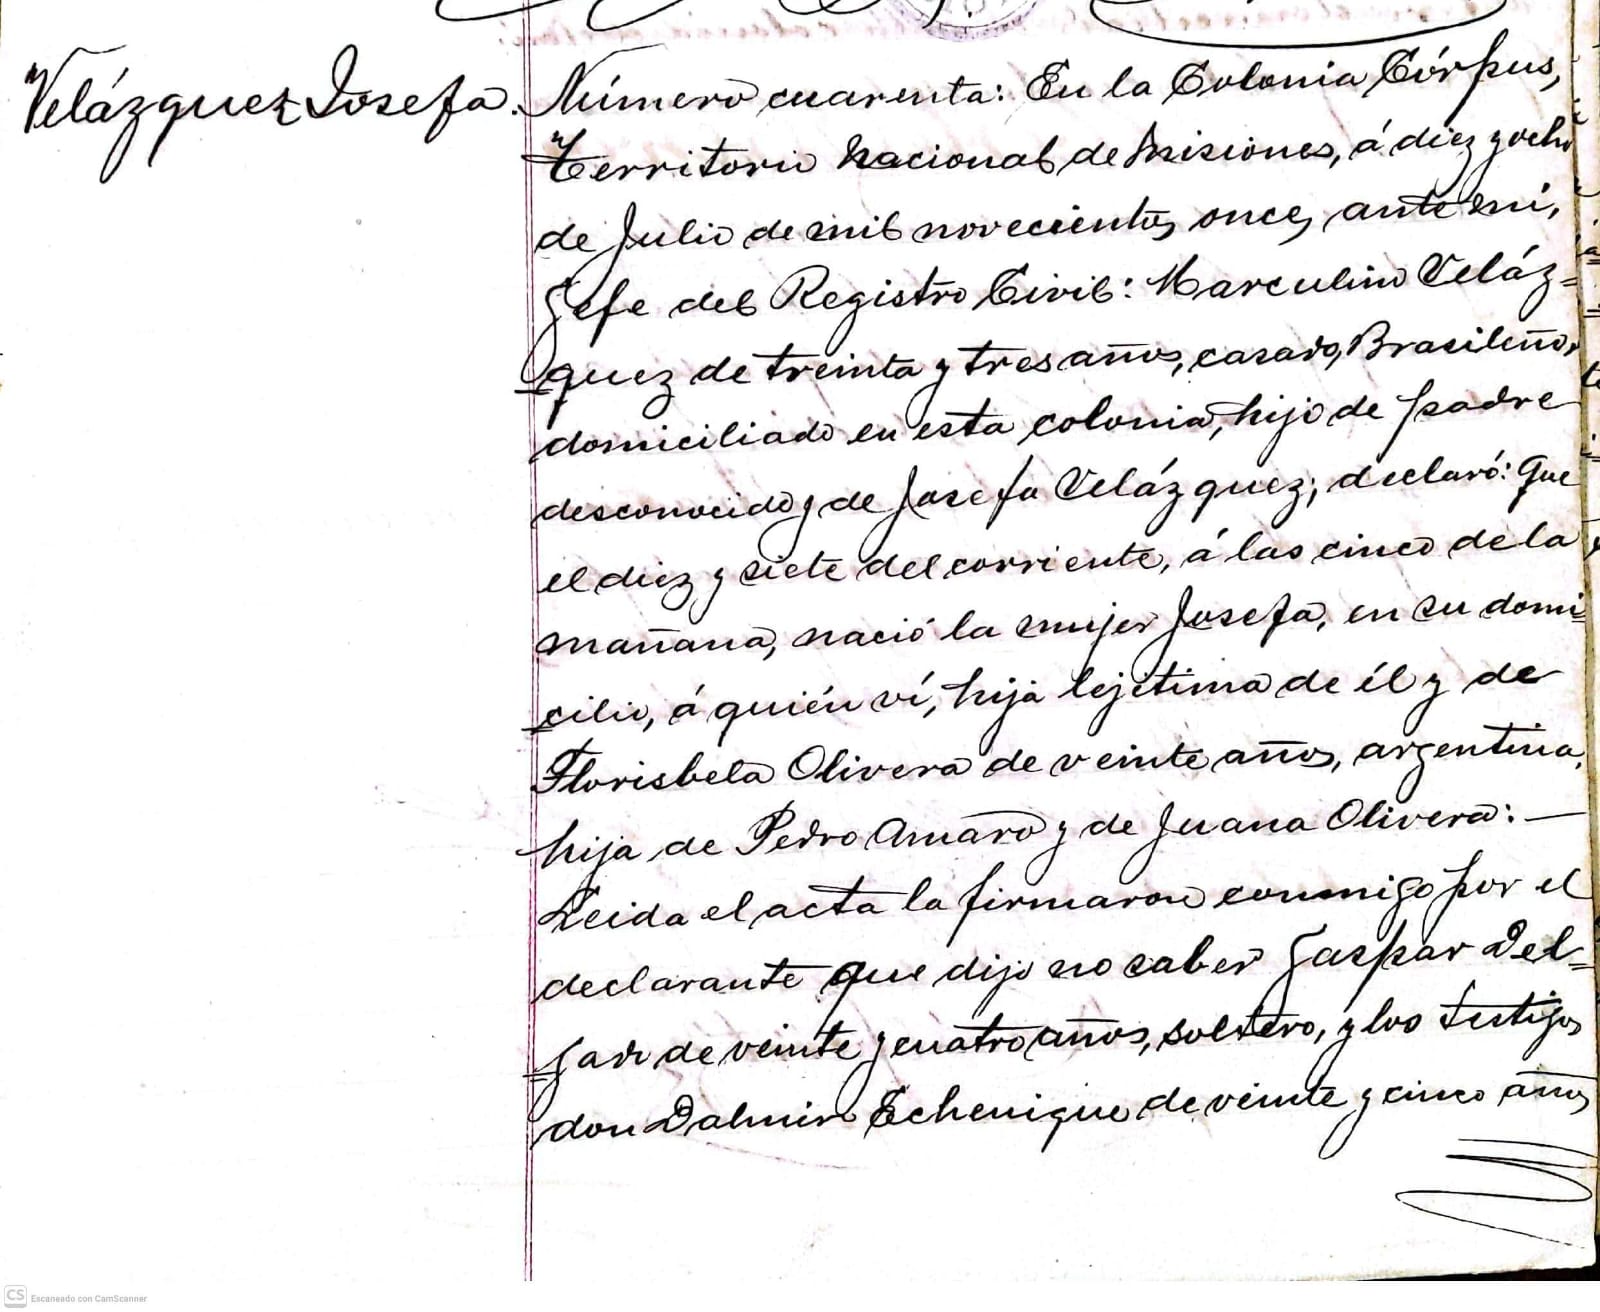 Velázquez Josefa.
Número cuarenta: En la Colonia Córpus,
Territorio Nacional de Misiones, á diez y ocho
de Julio de mil novecientos once, ante mi,
Gefe del Registro Civil: Marculino Veláz=
quez de treinta y tres años, casado, Brasileño,
domiciliado en esta colonia, hijo de padre
desconocido y de Josefa Velázquez; declaró: Que
el diez y siete del corriente, á las cinco de la
mañana, nació la mujer Josefa, en su domi=
cilio, á quién ví, hija lejetima de él y de
Florisbela Olivera de veinte años, argentina,
hija de Pedro Amaro y de Juana Olivera: —
Leida el acta la firmaron conmigo por el
declarante que dijo no saber Gaspar Del=
gado de veinte y cuatro años, soltero, y los testigos
don Dalmiro Echenique de veinte y cinco años
CS Escaneado con CamScanner